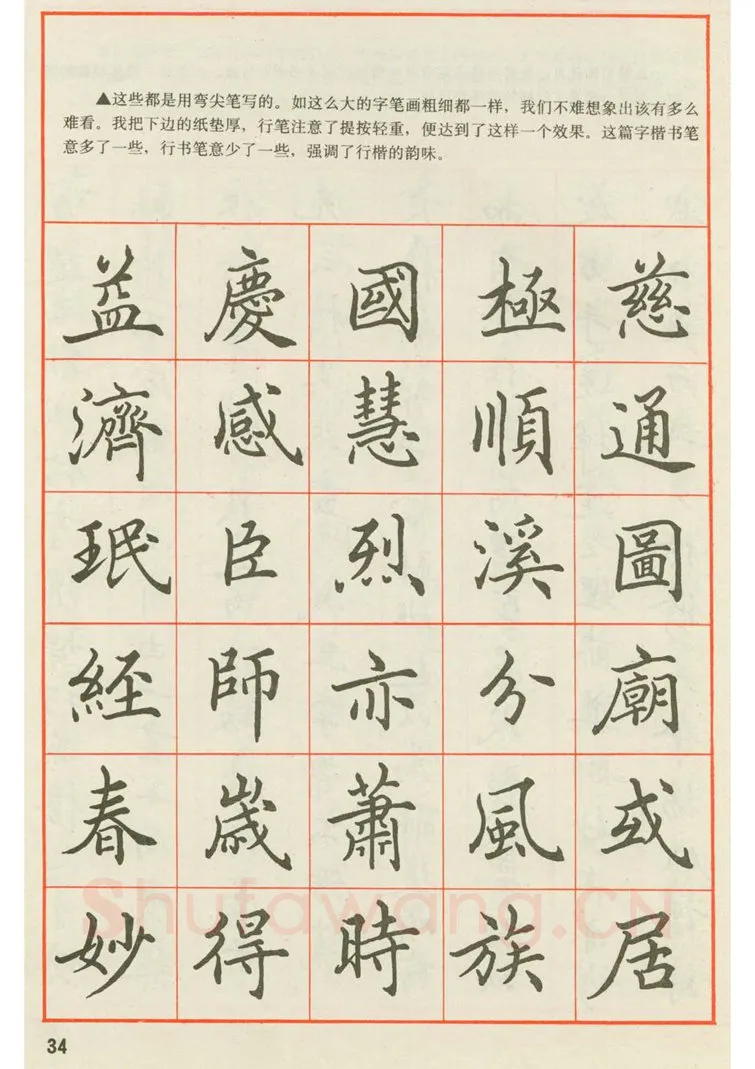 ▲这些都是用弯尖笔写的。如这么大的字笔画粗细都一样，我们不难想象出该有多么
难看。我把下边的纸垫厚，行笔注意了提按轻重，便达到了这样一个效果。这篇字楷书笔
意多了一些，行书笔意少了一些，强调了行楷的韵味。
慈通圖廟或居
極順溪分風族
國慧烈亦蕭時
慶感臣師歲得
益濟珉經春妙
Shufawang.CN
34